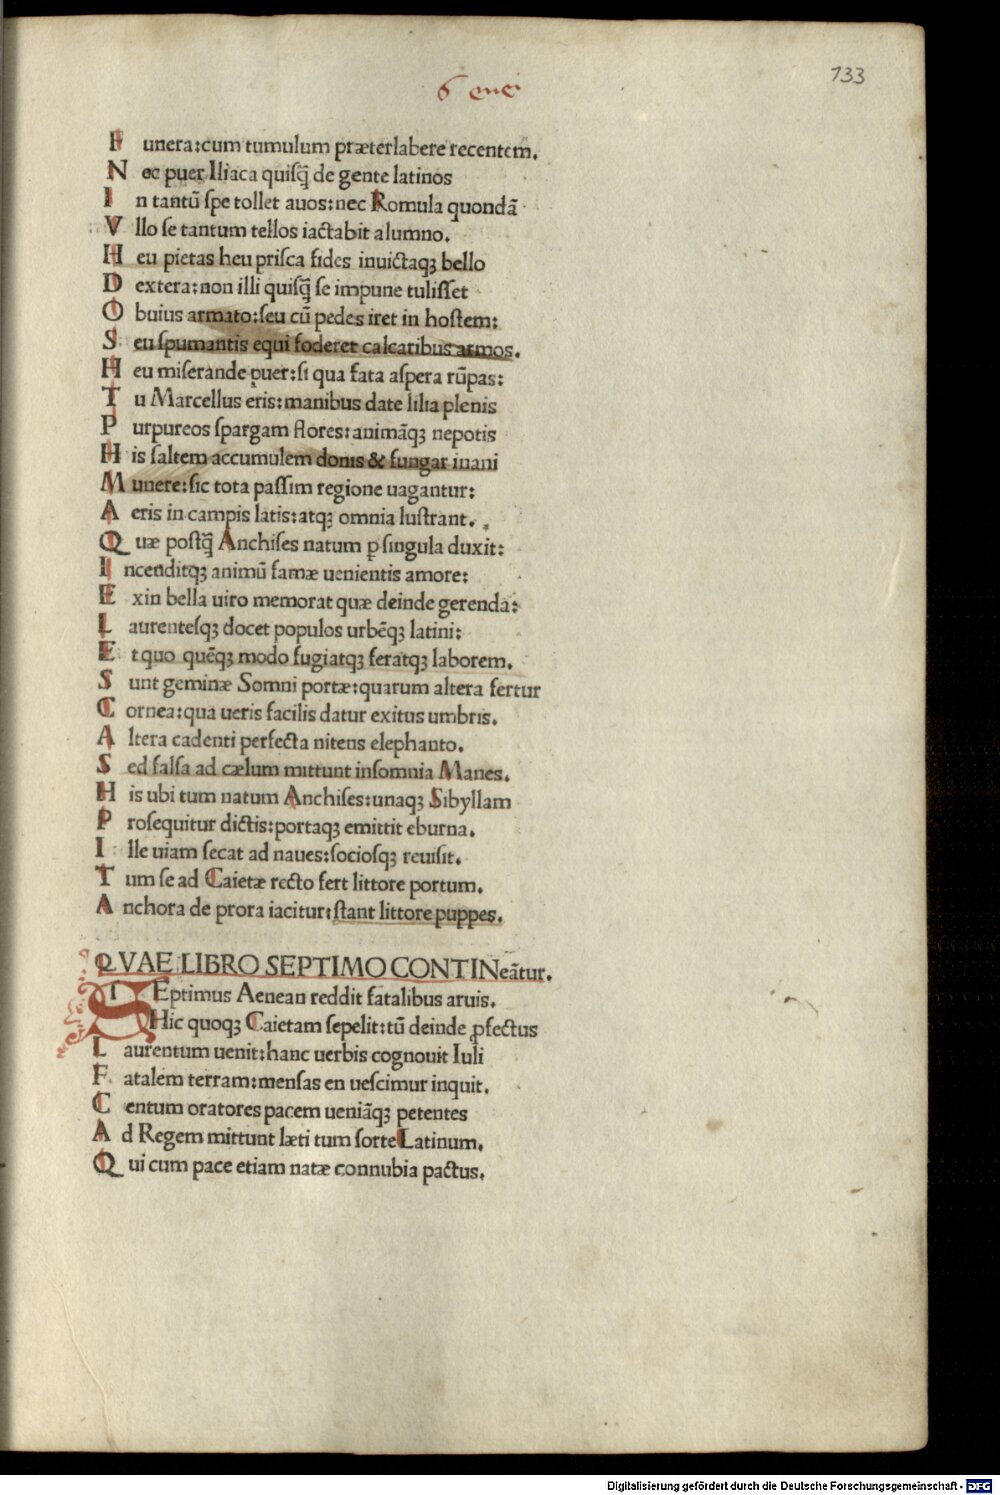 133
6 ene
F unera:cum tumulum præterlabere recentem.
N ec puer Iliaca quiſq̃ de gente latinos
I n tantũ ſpe tollet auos:nec Romula quondã
V llo ſe tantum tellos iactabit alumno.
H eu pietas heu priſca fides inuictaqꝫ bello
D extera:non illi quiſq̃ ſe impune tuliſſet
O buius armato:ſeu cũ pedes iret in hoſtem:
S eu ſpumantis equi foderet calcatibus armos.
H eu miſerande puer:ſi qua fata aſpera rũpas:
T u Marcellus eris:manibus date lilia plenis
P urpureos ſpargam flores:animãqꝫ nepotis
H is ſaltem accumulem donis & fungar inani
M unere:ſic tota paſſim regione uagantur:
A eris in campis latis:atqꝫ omnia luſtrant.
Q uæ poſtq̃ Anchiſes natum ꝑ ſingula duxit:
I ncenditqꝫ animũ famæ uenientis amore:
E xin bella uiro memorat quæ deinde gerenda:
L aurenteſqꝫ docet populos urbẽqꝫ latini:
E t quo quẽqꝫ modo fugiatqꝫ feratqꝫ laborem.
S unt geminæ Somni portæ:quarum altera fertur
C ornea:qua ueris facilis datur exitus umbris.
A ltera cadenti perfecta nitens elephanto.
S ed falſa ad cælum mittunt inſomnia Manes.
H is ubi tum natum Anchiſes:unaqꝫ Sibyllam
P roſequitur dictis:portaqꝫ emittit eburna.
I lle uiam ſecat ad naues:ſocioſqꝫ reuiſit.
T um ſe ad Caietæ recto fert littore portum.
A nchora de prora iacitur:ſtant littore puppes.
QVAE LIBRO SEPTIMO CONTINeãtur.
SEptimus Aenean reddit fatalibus aruis.
Hic quoqꝫ Caietam ſepelit:tũ deinde ꝓfectus
L aurentum uenit:hanc uerbis cognouit Iuli
F atalem terram:menſas en ueſcimur inquit.
C entum oratores pacem ueniãqꝫ petentes
A d Regem mittunt læti tum ſorte Latinum.
Q ui cum pace etiam natæ connubia pactus.
Digitalisierung gefördert durch die Deutsche Forschungsgemeinschaft - DFG